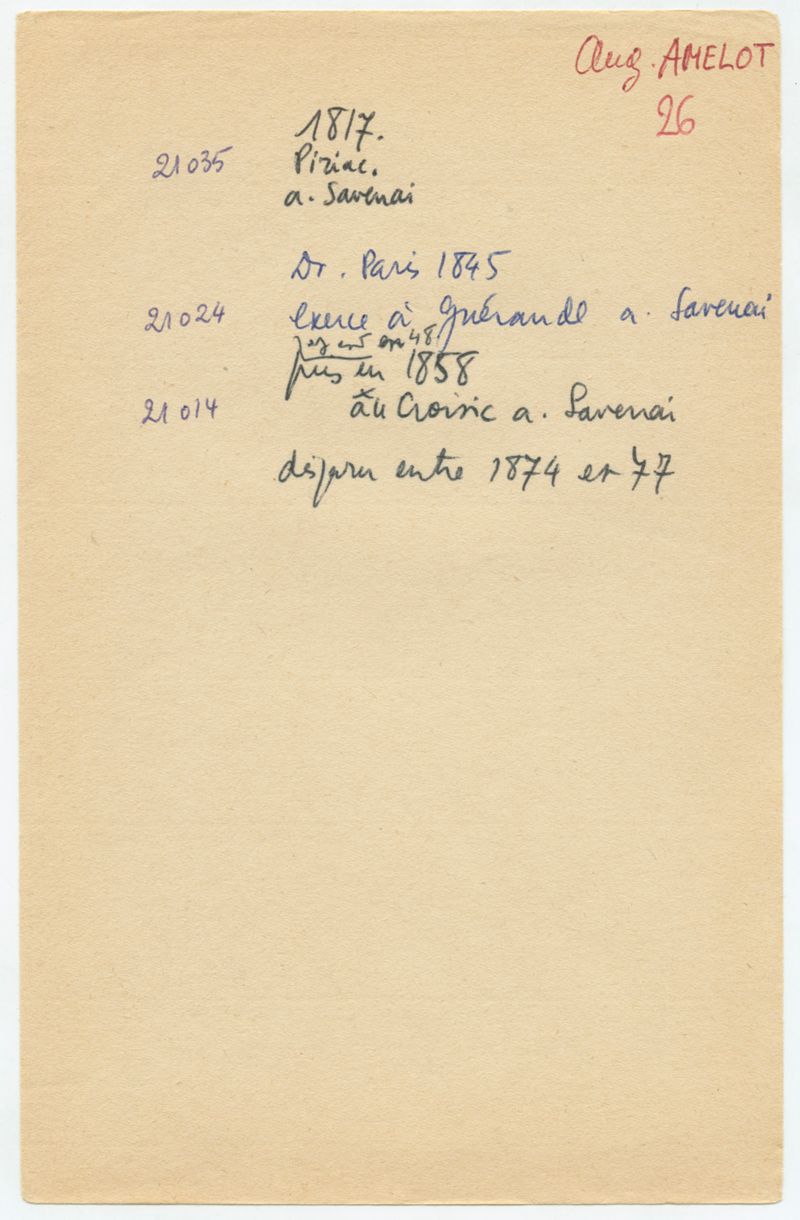 Aug. AMELOT
26
1817.
21035 Piriac.
a. Savenai
Dr. Paris 1845
21024 exerce à Guérande a. Savenai
y est en 48
puis en 1858
21014 au Croisic a. Savenai
disparu entre 1874 et 77